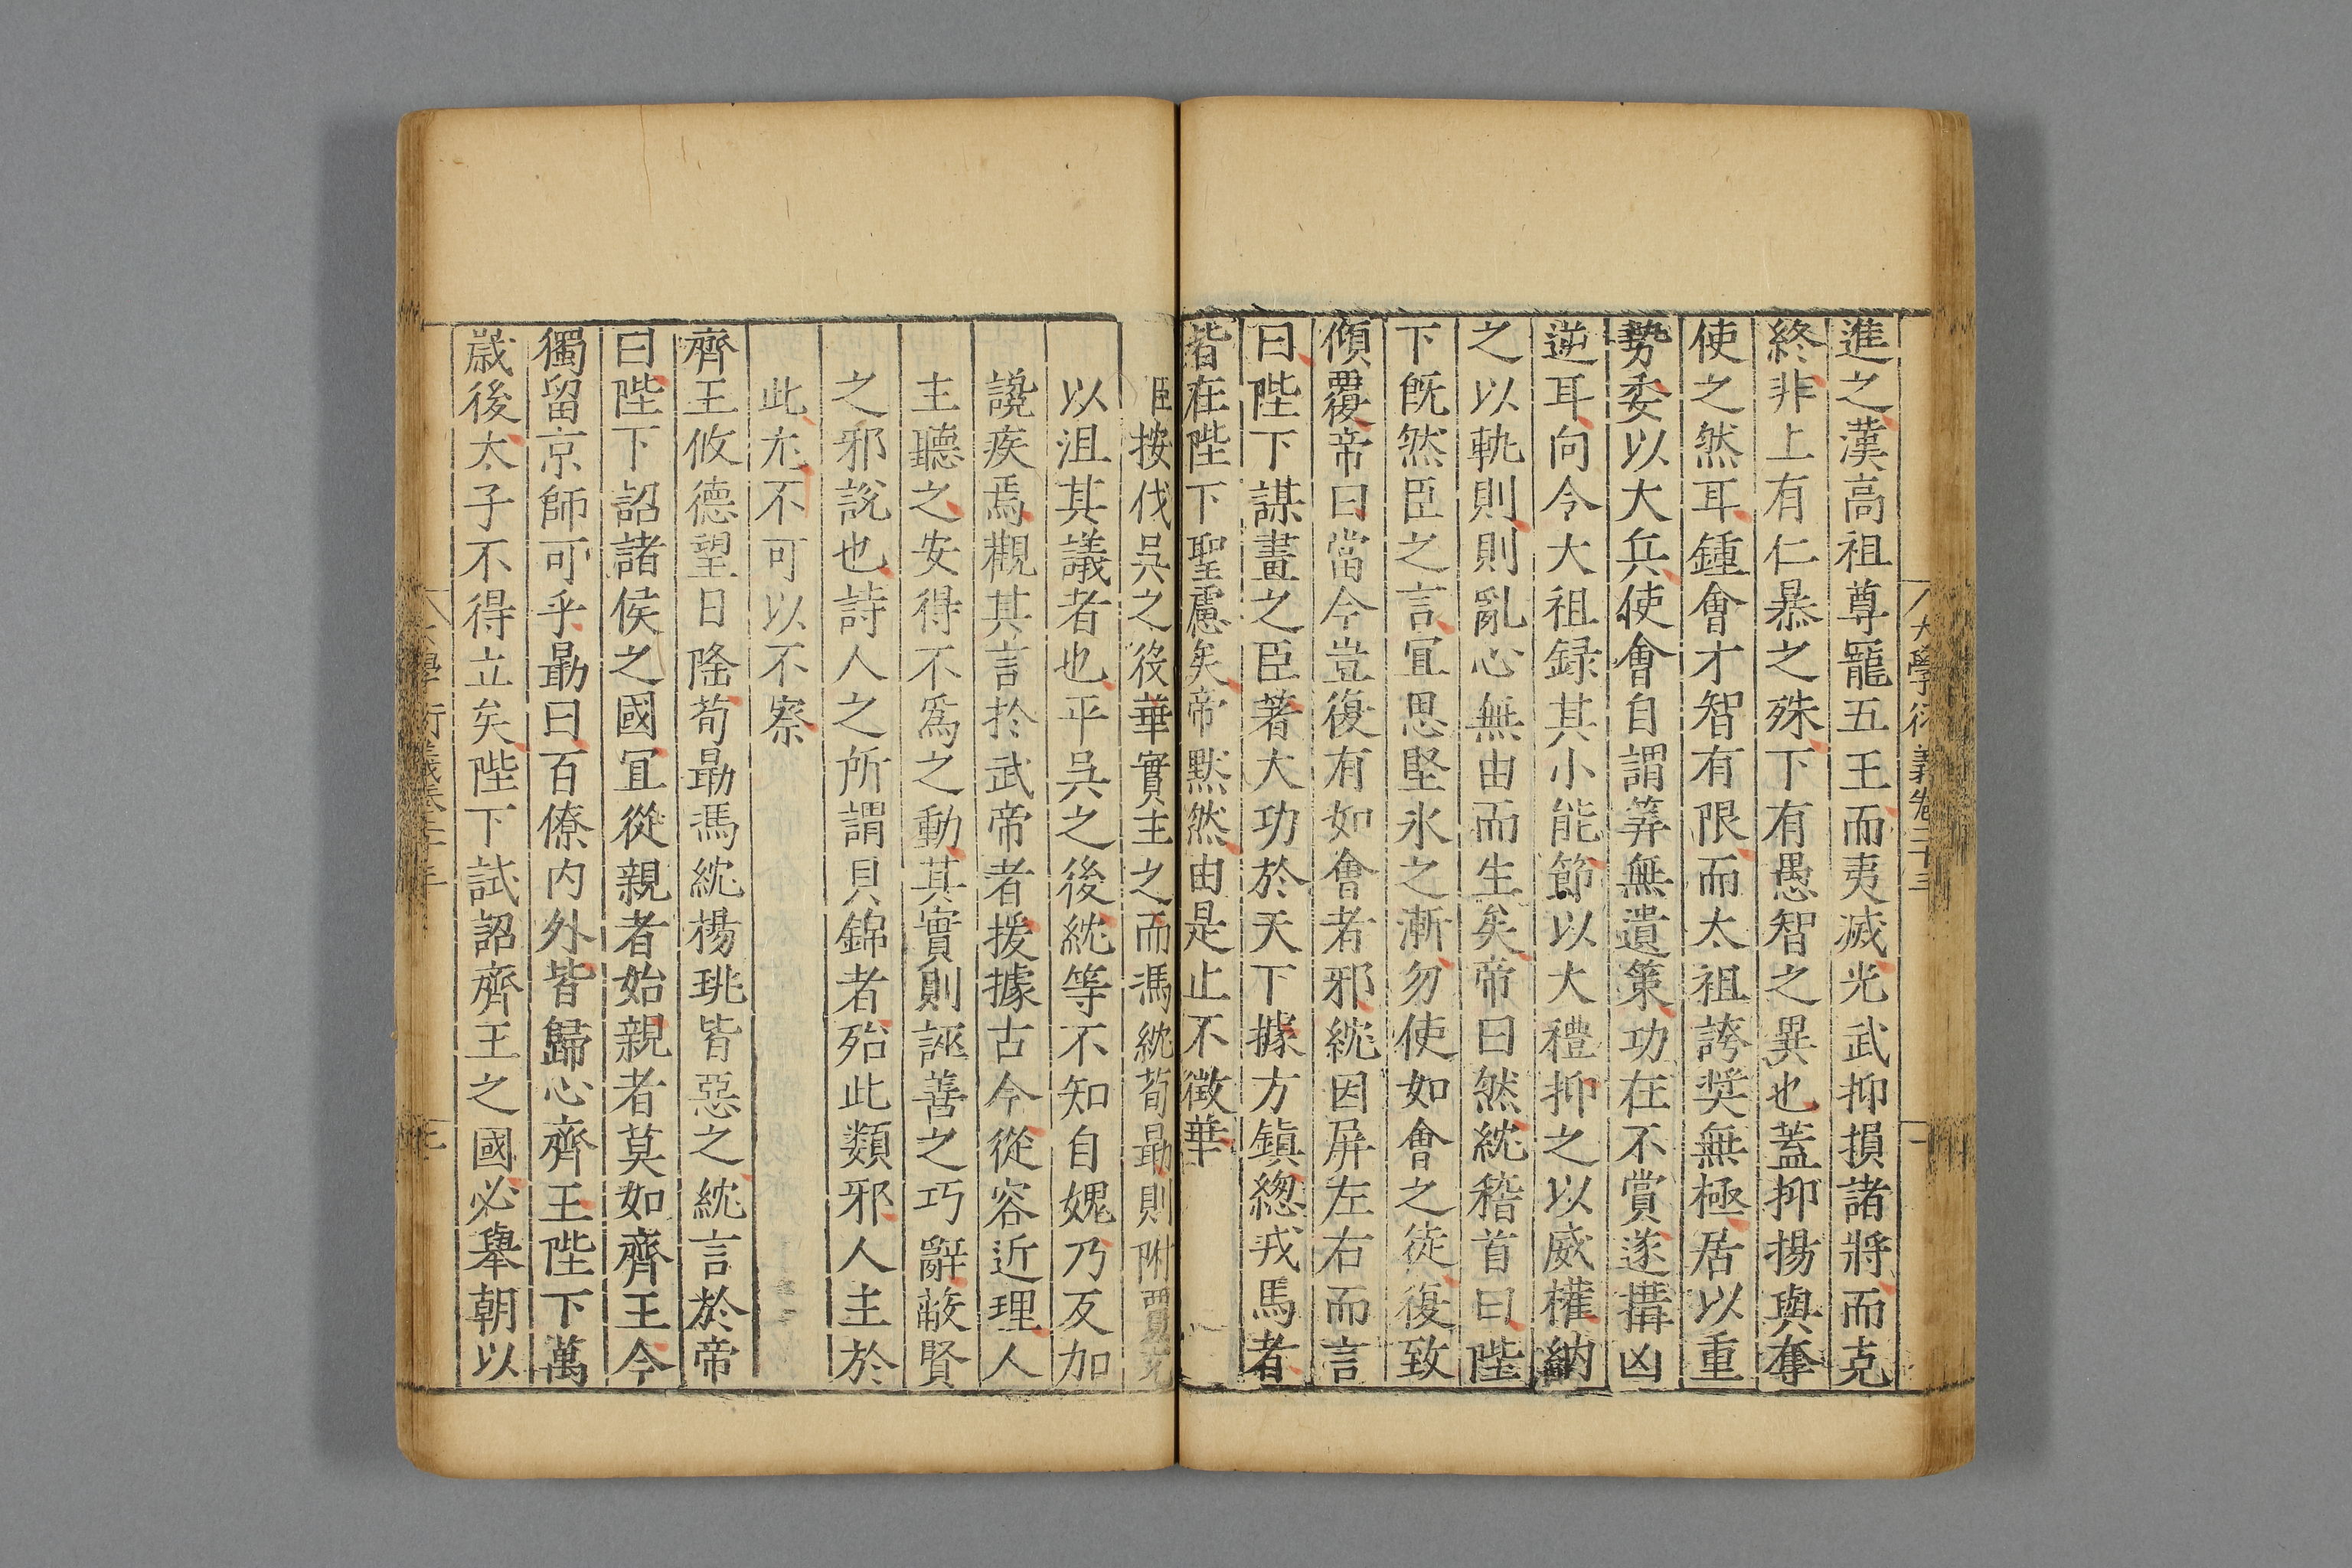 大學衍義卷二十三
進之漢高祖尊寵五王而夷滅光武抑損諸將而克
終非上有仁暴之殊下有愚智之異也蓋抑揚與奪
使之然耳鍾會才智有限而太祖誇奖無極居以重
勢委以大兵使會自謂筭無遺策功在不賞遂搆凶
逆耳向令大祖録其小能節以大禮抑之以威權納
之以軌則則亂心無由而生矣帝曰然紞稽首曰陛
下旣然臣之言冝思堅氷之漸勿使如會之徒復致
傾覆帝曰當今豈復有如會者邪紞因屏左右而言
曰陛下謀畫之臣著大功於天下據方鎮緫戎馬者
皆在陛下聖慮矣帝默然由是止不徵華
臣按伐吳之役華實主之而馮紞荀勗則附賈充
以沮其議者也平吳之後紞等不知自媿乃反加
讒疾焉觀其言於武帝者援據古今從容近理人
主聽之安得不爲之動其實則誣善之巧辭蔽賢
之邪說也詩人之所謂貝錦者殆此類邪人主於
此尤不可以不察
齊王攸德望日隆荀勗馮紞楊珧皆惡之紞言於帝
曰陛下詔諸侯之國冝從親者始親者莫如齊王今
獨留京師可乎勗曰百僚内外皆歸心齊王陛下萬
歲後太子不得立矣陛下試詔齊王之國必舉朝以
學衍義卷二十三